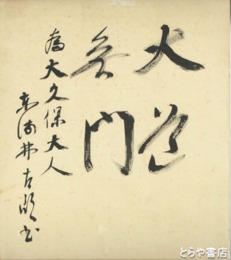 大道
無門
為大久保大人
書
© とらや書店